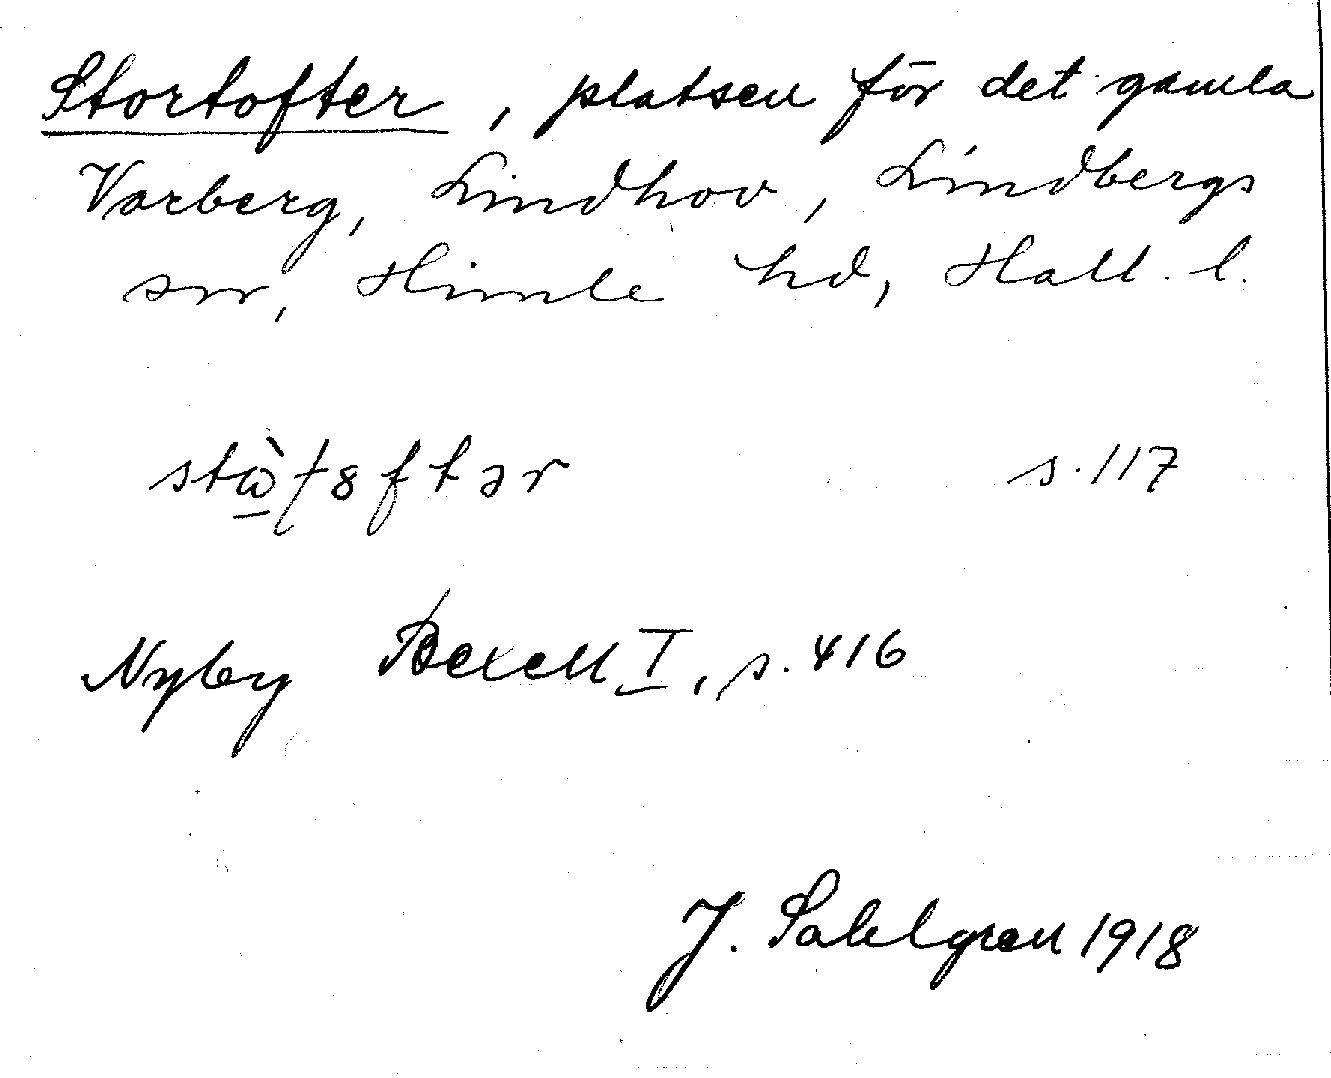 Stortofter, platsen för det gamla
Varberg, Lindhov, Lindbergs
sn, Himle hd, Hall. l.
s. 117
Nyby Bexell I, s. 416
J. Sahlgren 1918